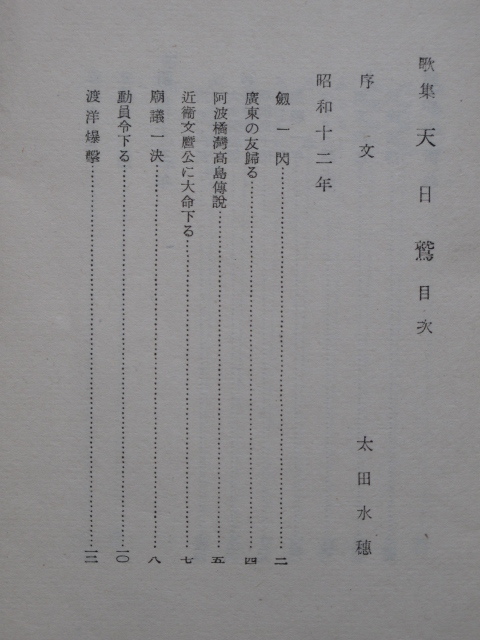 歌集 天日鷲 目次
序文 太田水穗
昭和十二年
劔一閃……二
廣東の友歸る……四
阿波橘灣高島傳說……五
近衞文麿公に大命下る……七
廟議一決……八
動員令下る……一〇
渡洋爆擊……一二